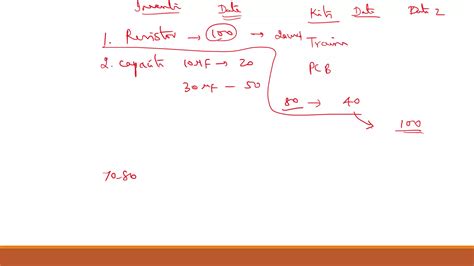 Date Kits Date Date 2
1. Resistor → 100 → Train
2. Capacit 10 μF → 20 PCB
30 μF — 50
80 → 40
100
70-80